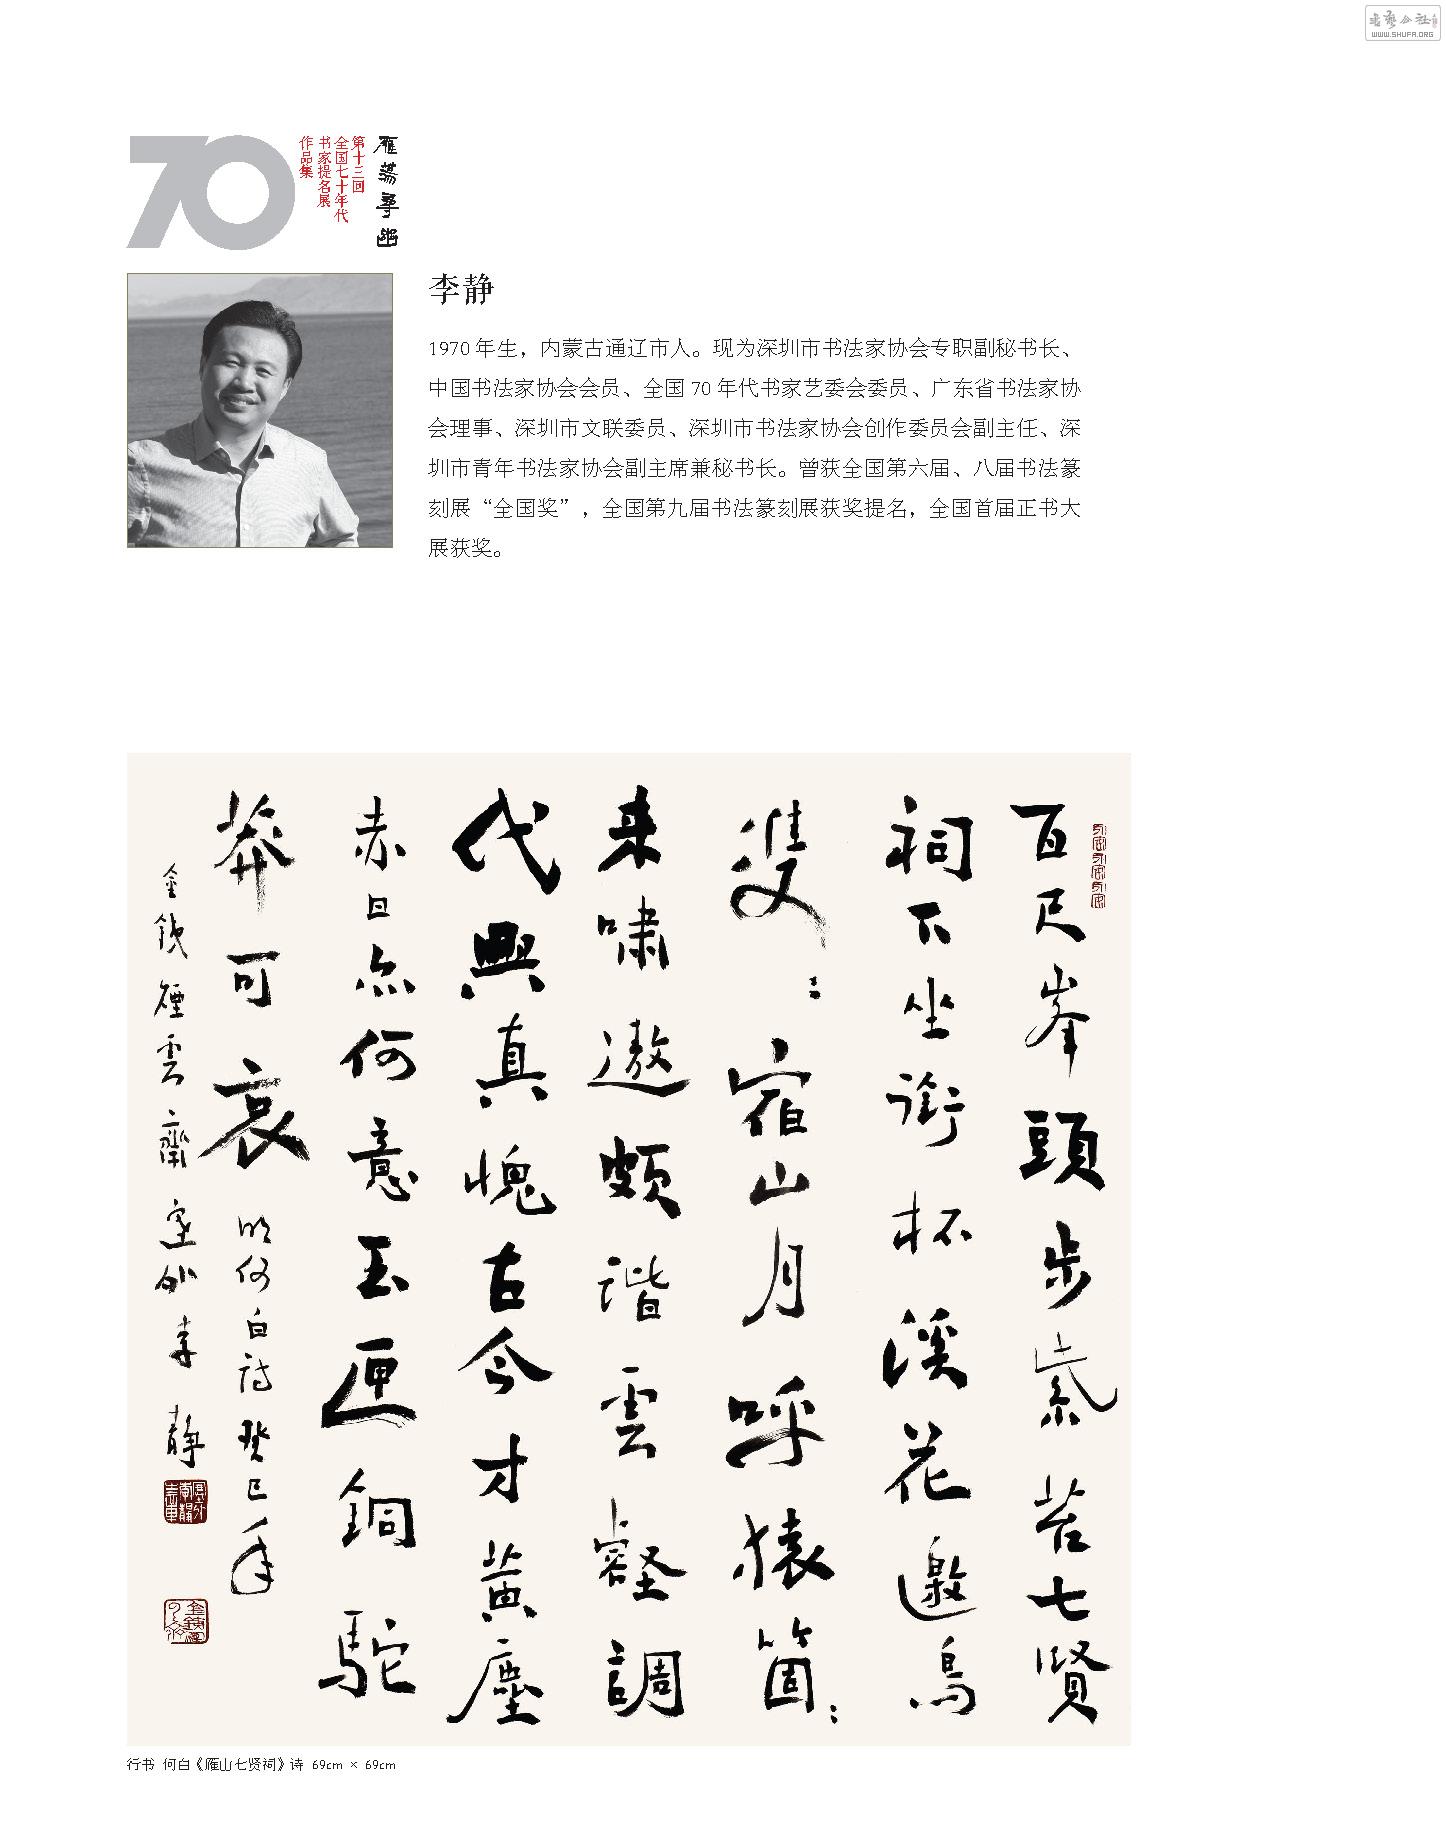 書藝公社
WWW.SHUFA.ORG
70
雁蕩尋幽
第十三回
全国七十年代
书家提名展
作品集
李静
1970 年生，内蒙古通辽市人。现为深圳市书法家协会专职副秘书长、
中国书法家协会会员、全国 70 年代书家艺委会委员、广东省书法家协
会理事、深圳市文联委员、深圳市书法家协会创作委员会副主任、深
圳市青年书法家协会副主席兼秘书长。曾获全国第六届、八届书法篆
刻展“全国奖”，全国第九届书法篆刻展获奖提名，全国首届正书大
展获奖。
百尺峯頭步紫苔七賢
祠下坐銜杯溪花邀鳥
雙：宿山月呼猿箇：
来嘯遨頗諧雲壑調
代興真愧古今才黄塵
赤日亦何意玉匣銅駝
莽可哀 明何白詩癸巳年
金錢煙雲齋塞外李靜
行书 何白《雁山七贤祠》诗 69cm × 69cm